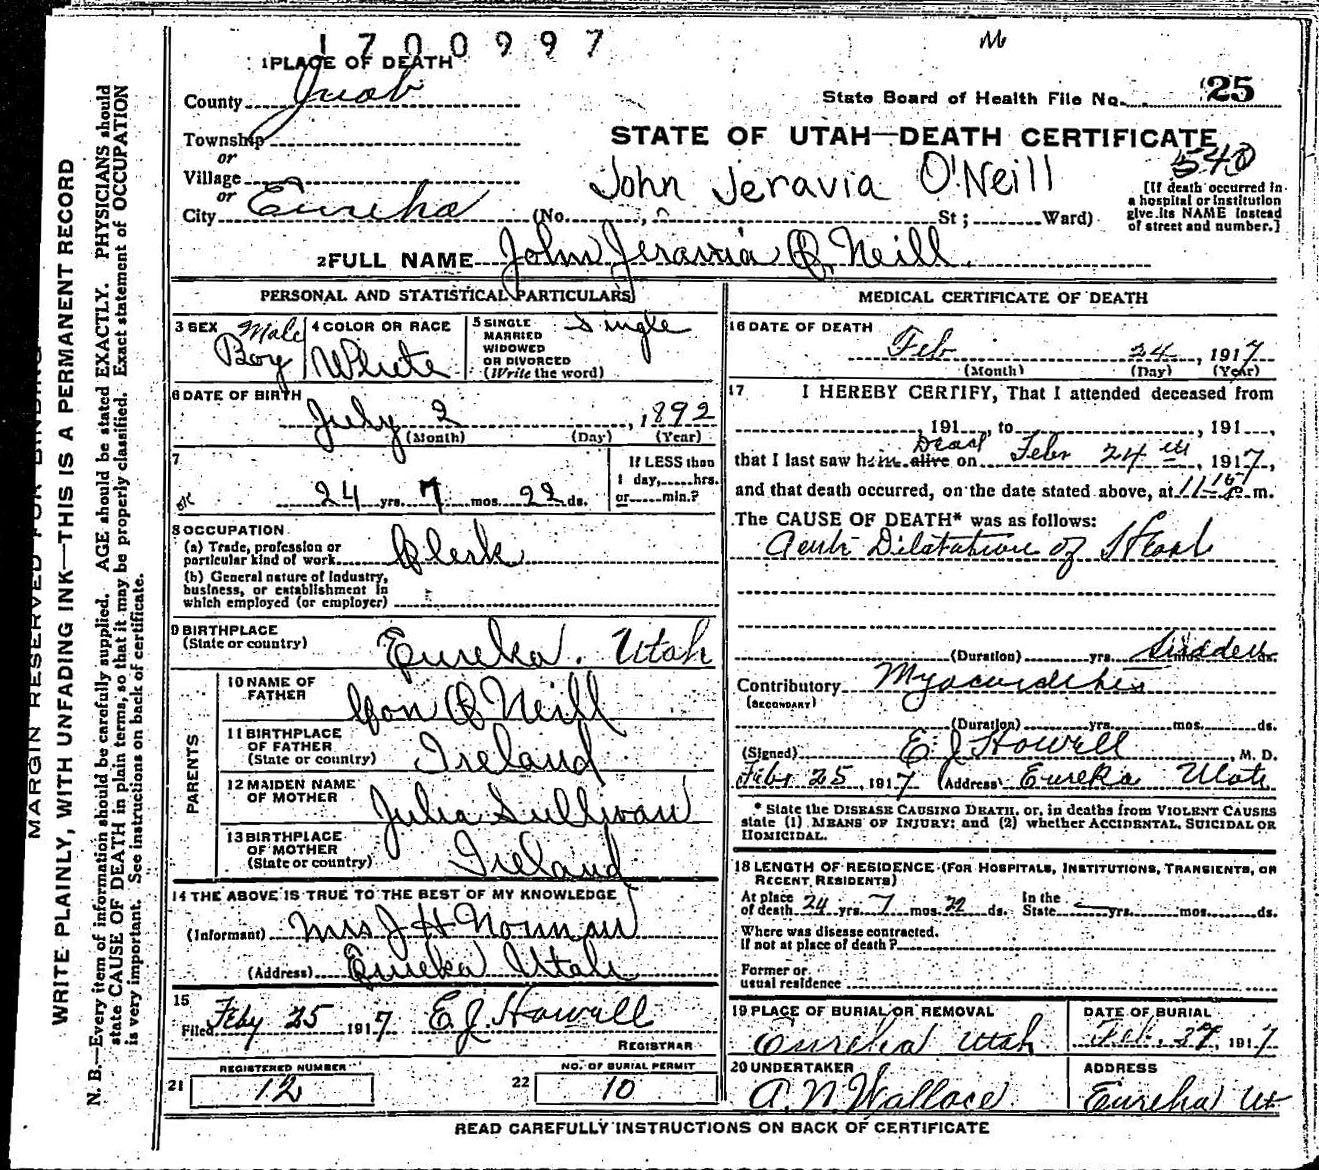 1700997
M
1 PLACE OF DEATH
County Juab
State Board of Health File No. 25
Township
or
STATE OF UTAH—DEATH CERTIFICATE
540
Village
or
John Jeravia O'Neill
City Eureka (No. St; Ward)
[If death occurred in
a hospital or institution
give its NAME instead
of street and number.]
2 FULL NAME John Jeravia O'Neill
PERSONAL AND STATISTICAL PARTICULARS
3 SEX Male
Boy
4 COLOR OR RACE
White
5 SINGLE
MARRIED
WIDOWED
OR DIVORCED
(Write the word)
Single
6 DATE OF BIRTH
July 2, 1892
(Month) (Day) (Year)
7
24 yrs. 7 mos. 22 ds.
If LESS than
1 day, hrs.
or min.?
8 OCCUPATION
(a) Trade, profession or
particular kind of work Clerk
(b) General nature of Industry,
business, or establishment in
which employed (or employer)
9 BIRTHPLACE
(State or country) Eureka. Utah
PARENTS
10 NAME OF
FATHER Con O'Neill
11 BIRTHPLACE
OF FATHER
(State or country) Ireland
12 MAIDEN NAME
OF MOTHER Julia Sullivan
13 BIRTHPLACE
OF MOTHER
(State or country) Ireland
14 THE ABOVE IS TRUE TO THE BEST OF MY KNOWLEDGE
(Informant) Mrs J H Norman
(Address) Eureka Utah
15
Filed Feby 25 1917 E.J. Howell
REGISTRAR
REGISTERED NUMBER
21 12
NO. OF BURIAL PERMIT
22 10
MEDICAL CERTIFICATE OF DEATH
16 DATE OF DEATH
Feb 24, 1917
(Month) (Day) (Year)
17 I HEREBY CERTIFY, That I attended deceased from
, 191 , to , 191 ,
Dead
that I last saw him alive on Febr 24th, 1917,
and that death occurred, on the date stated above, at 11-15 P m.
The CAUSE OF DEATH* was as follows:
Acute Dilatation of Heart
(Duration) yrs. Sudden ds.
Contributory Myocarditis
(SECONDARY)
(Duration) yrs. mos. ds.
(Signed) E. J Howell, M. D.
Feby 25, 1917 (Address) Eureka Utah
* State the DISEASE CAUSING DEATH, or, in deaths from VIOLENT CAUSES
state (1) MEANS OF INJURY; and (2) whether ACCIDENTAL, SUICIDAL OR
HOMICIDAL.
18 LENGTH OF RESIDENCE (FOR HOSPITALS, INSTITUTIONS, TRANSIENTS, OR
RECENT RESIDENTS)
At place
of death 24 yrs. 7 mos. 22 ds.
In the
State yrs. mos. ds.
Where was disease contracted.
If not at place of death?
Former or
usual residence
19 PLACE OF BURIAL OR REMOVAL
Eureka Utah
DATE OF BURIAL
Feb. 27, 1917
20 UNDERTAKER
A. N. Wallace
ADDRESS
Eureka Ut
READ CAREFULLY INSTRUCTIONS ON BACK OF CERTIFICATE
MARGIN RESERVED FOR BINDING
WRITE PLAINLY, WITH UNFADING INK—THIS IS A PERMANENT RECORD
N. B.—Every item of information should be carefully supplied. AGE should be stated EXACTLY. PHYSICIANS should
state CAUSE OF DEATH in plain terms, so that it may be properly classified. Exact statement of OCCUPATION
is very important. See instructions on back of certificate.